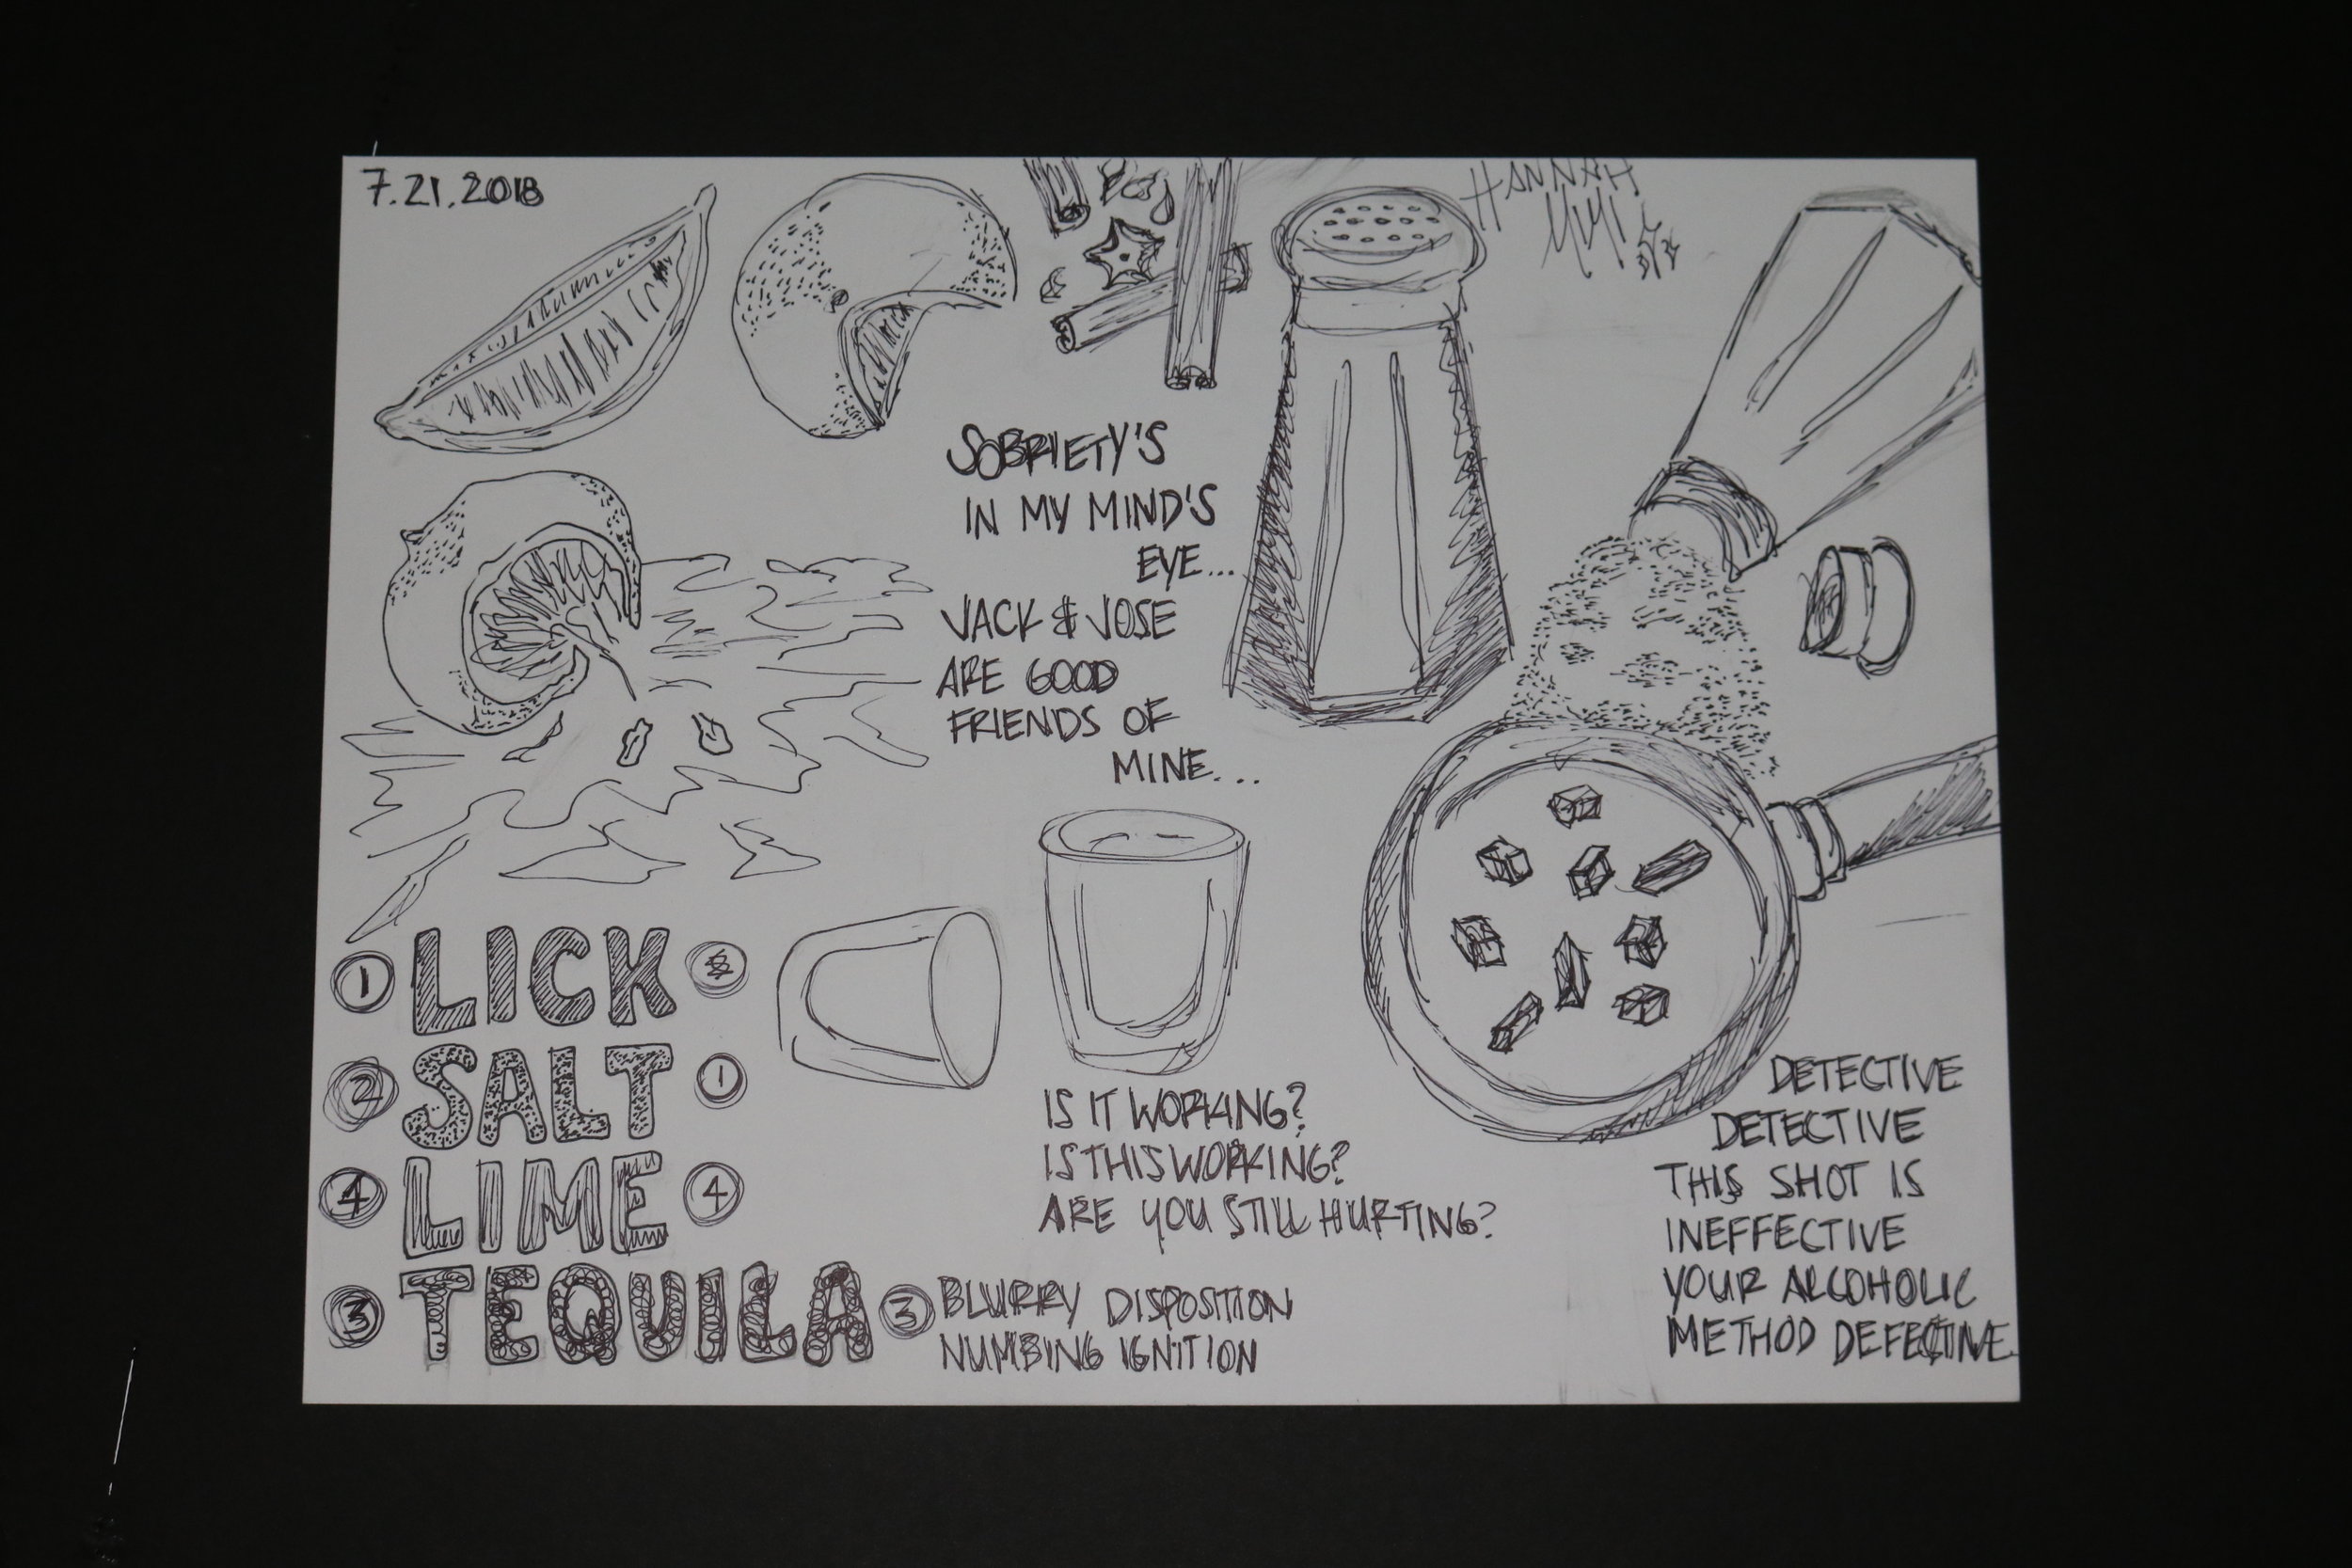 7.21.2018
HANNAH
SOBRIETY'S
IN MY MIND'S
EYE...
JACK & JOSE
ARE GOOD
FRIENDS OF
MINE...
1 LICK
2 SALT 1
4 LIME 4
3 TEQUILA 3
IS IT WORKING?
IS THIS WORKING?
ARE YOU STILL HURTING?
BLURRY DISPOSITION
NUMBING IGNITION
DETECTIVE
DETECTIVE
THIS SHOT IS
INEFFECTIVE
YOUR ALCOHOLIC
METHOD DEFECTIVE.